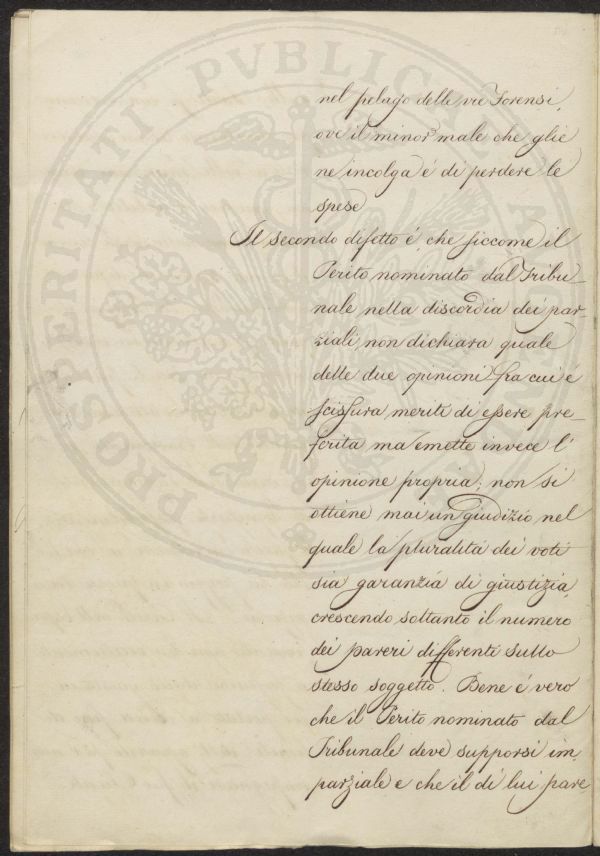 nel pelago delle vie Forensi,
ove il minor male che glie
ne incolga é di perdere le
spese
Il secondo difetto é, che siccome il
Perito nominato dal Tribu_
nale nella discordia dei par_
ziali, non dichiara quale
delle due opinioni fra cui é
scissura meriti di essere pre_
ferita ma emette invece l'
opinione propria; non si
ottiene mai un giudizio nel
quale la pluralitá dei voti
sia garanzia di giustizia,
crescendo soltanto il numero
dei pareri differenti sullo
stesso soggetto. Bene é vero
che il Perito nominato dal
Tribunale deve supporsi im_
parziale e che il di lui pare_
PROSPERITATI PVBLICA